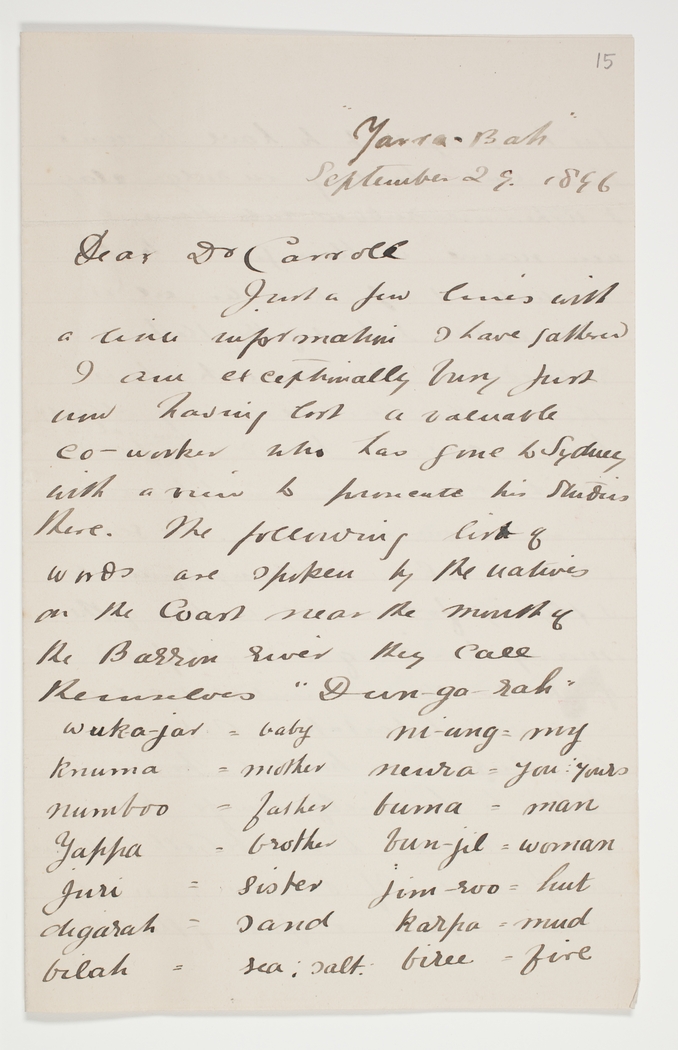 15
"Yarra-Bah"
September 29. 1896
Dear Dr Carroll
Just a few lines with
a little information I have gathered
I am exceptionally busy just
now having lost a valuable
co-worker who has gone to Sydney
with a view to prosecute his studies
there. The following list of
words are spoken by the natives
on the Coast near the mouth of
the Barron river they call
themselves "Dun-ga-rah"
wuka-jar = baby ni-ung = my
knuma = mother neura = you: yours
numboo = father buma = man
Yappa = brother bun-jil = woman
juri = sister jim-roo = hut
digarah = sand karpa = mud
bilah = sea; salt. biree = fire